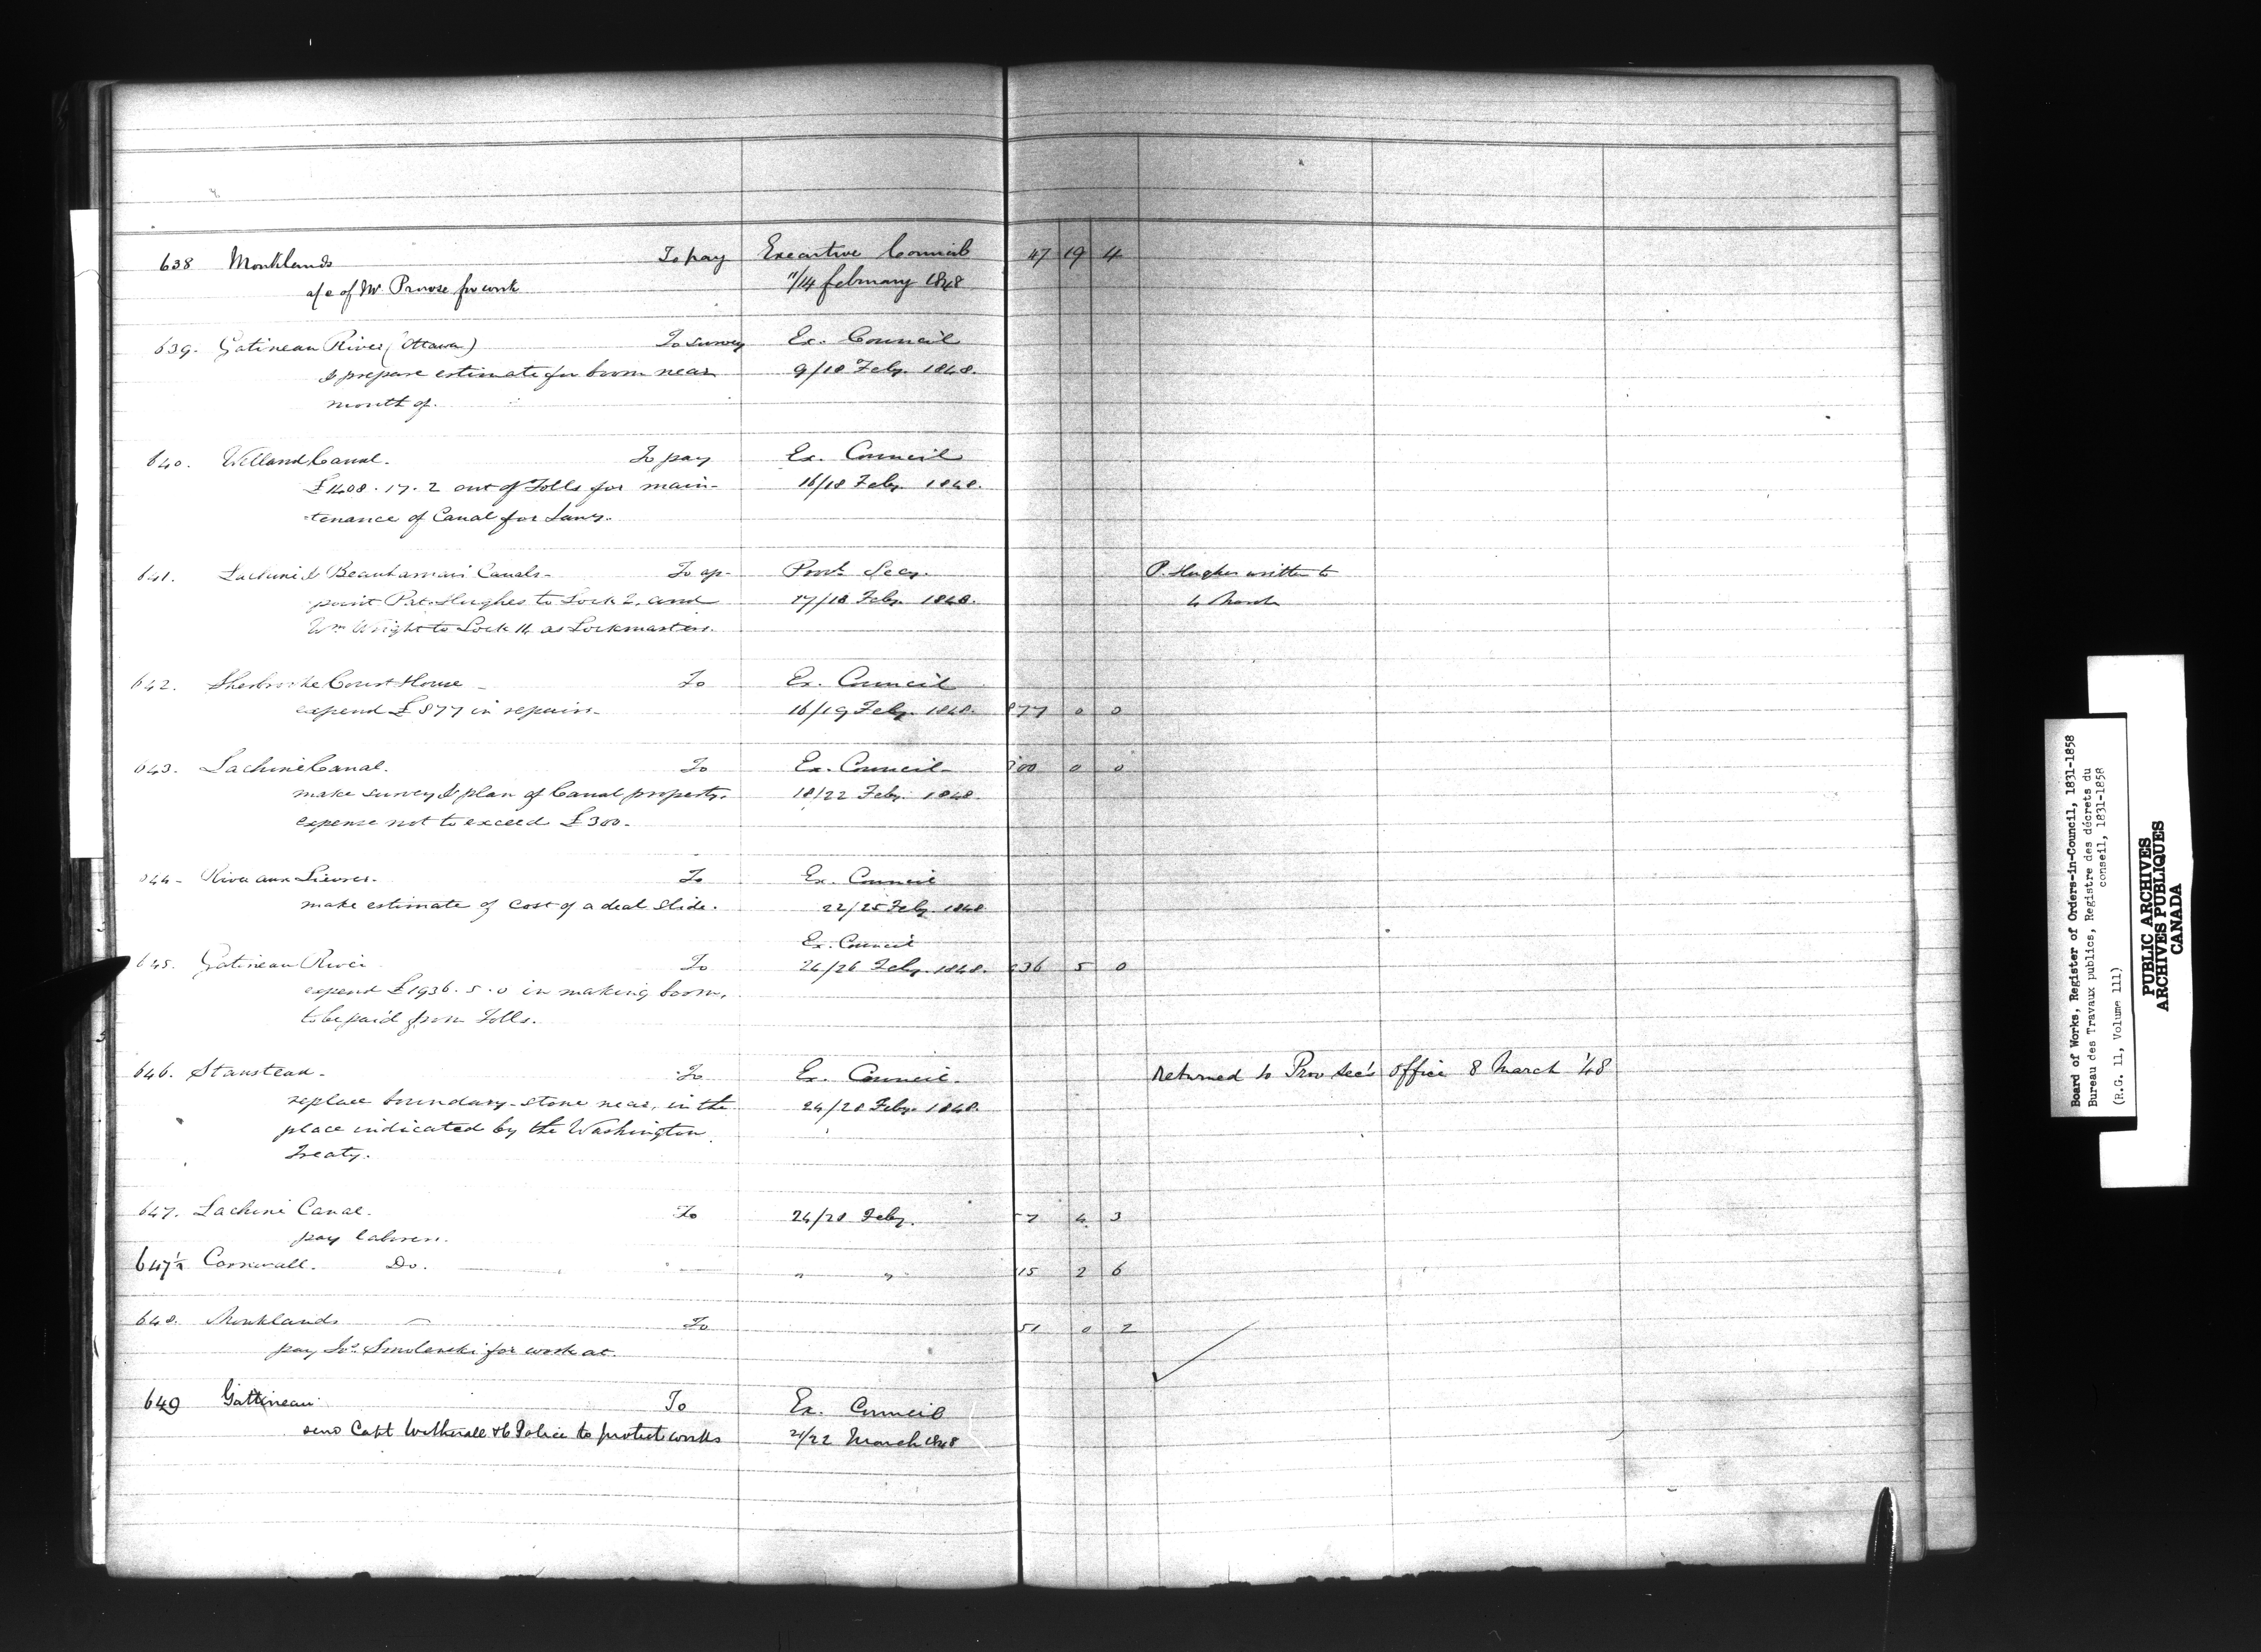 638 Monklands To pay Executive Council 47 19 4
a/c of Mr. Prowse for work 11/14 february 1848
639. Gatineau River (Ottawa) To survey Ex. Council
& prepare estimate for boom near 9/18 Feby. 1848.
mouth of.
640. Welland Canal. To pay Ex. Council
£1408.17.2 out of Tolls for main- 16/18 Feby. 1848.
tenance of Canal for Jany.
641. Lachine & Beauharnais Canals. To ap- Provl. Secy. P. Hughes written to
point Pat. Hughes to Lock 2, and 17/18 Feby. 1848. 4 March
Wm Wright to Lock 14 as Lockmasters.
642. Sherbrooke Court House - To Ex. Council
expend £877 in repairs. 16/19 Feby. 1848. 877 0 0
643. Lachine Canal. To Ex. Council 300 0 0
make survey & plan of Canal property. 18/22 Feby. 1848.
expense not to exceed £300.
644 - River aux Lievres. To Ex. Council
make estimate of cost of a deal slide. 22/25 Feby. 1848
Ex. Council
645. Gatineau River To 24/26 Feby. 1848. 936 5 0
expend £1936.5.0 in making boom,
to be paid from Tolls.
646. Stanstead - To Ex. Council. Returned to Prov Sec's office 8 March '48
replace boundary-stone near, in the 24/28 Feby. 1848.
place indicated by the Washington
Treaty.
647. Lachine Canal. To 24/28 Feby. 7 4 3
pay laborers.
647½ Cornwall. Do. " " 15 2 6
648. Monklands To 51 0 2
pay Jos. Smolenski for work at.
649 Gatineau To Ex. Council
send Capt Wetherall & 6 Police to protect works 21/22 March 1848
Board of Works, Register of Orders-in-Council, 1831-1858
Bureau des Travaux publics, Registre des décrets du
conseil, 1831-1858
(R.G. 11, Volume 111)
PUBLIC ARCHIVES
ARCHIVES PUBLIQUES
CANADA